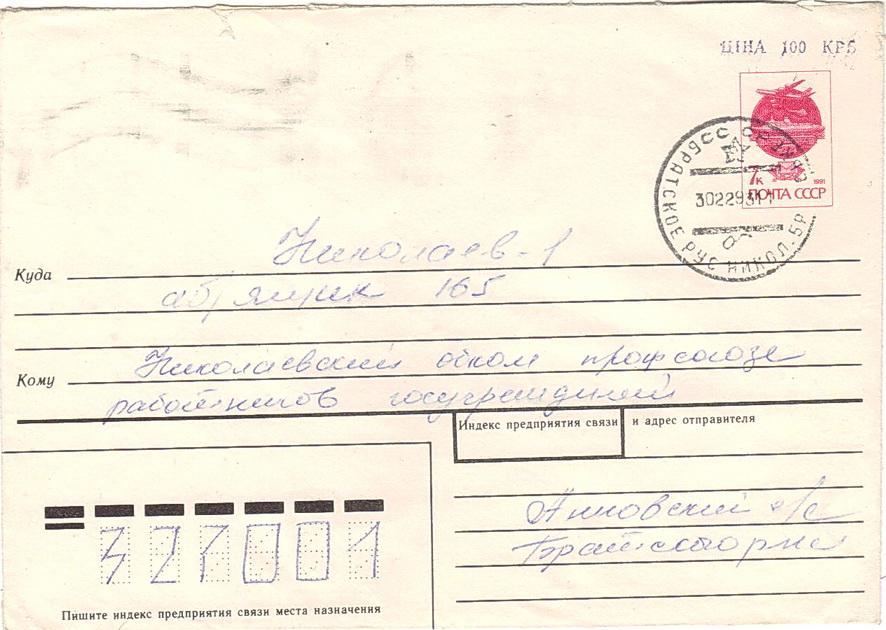 ЦІНА 100 КРБ
7к 1991
ПОЧТА СССР
СССР
БРАТСКОЕ РУС НИКОЛ. БР
30229311
Николаев-1
Куда
аб/ящик 165
Николаевский обком профсоюза
Кому
работников госучреждений
Индекс предприятия связи
и адрес отправителя
327001
Анновский с/с
Братского р-на
Пишите индекс предприятия связи места назначения